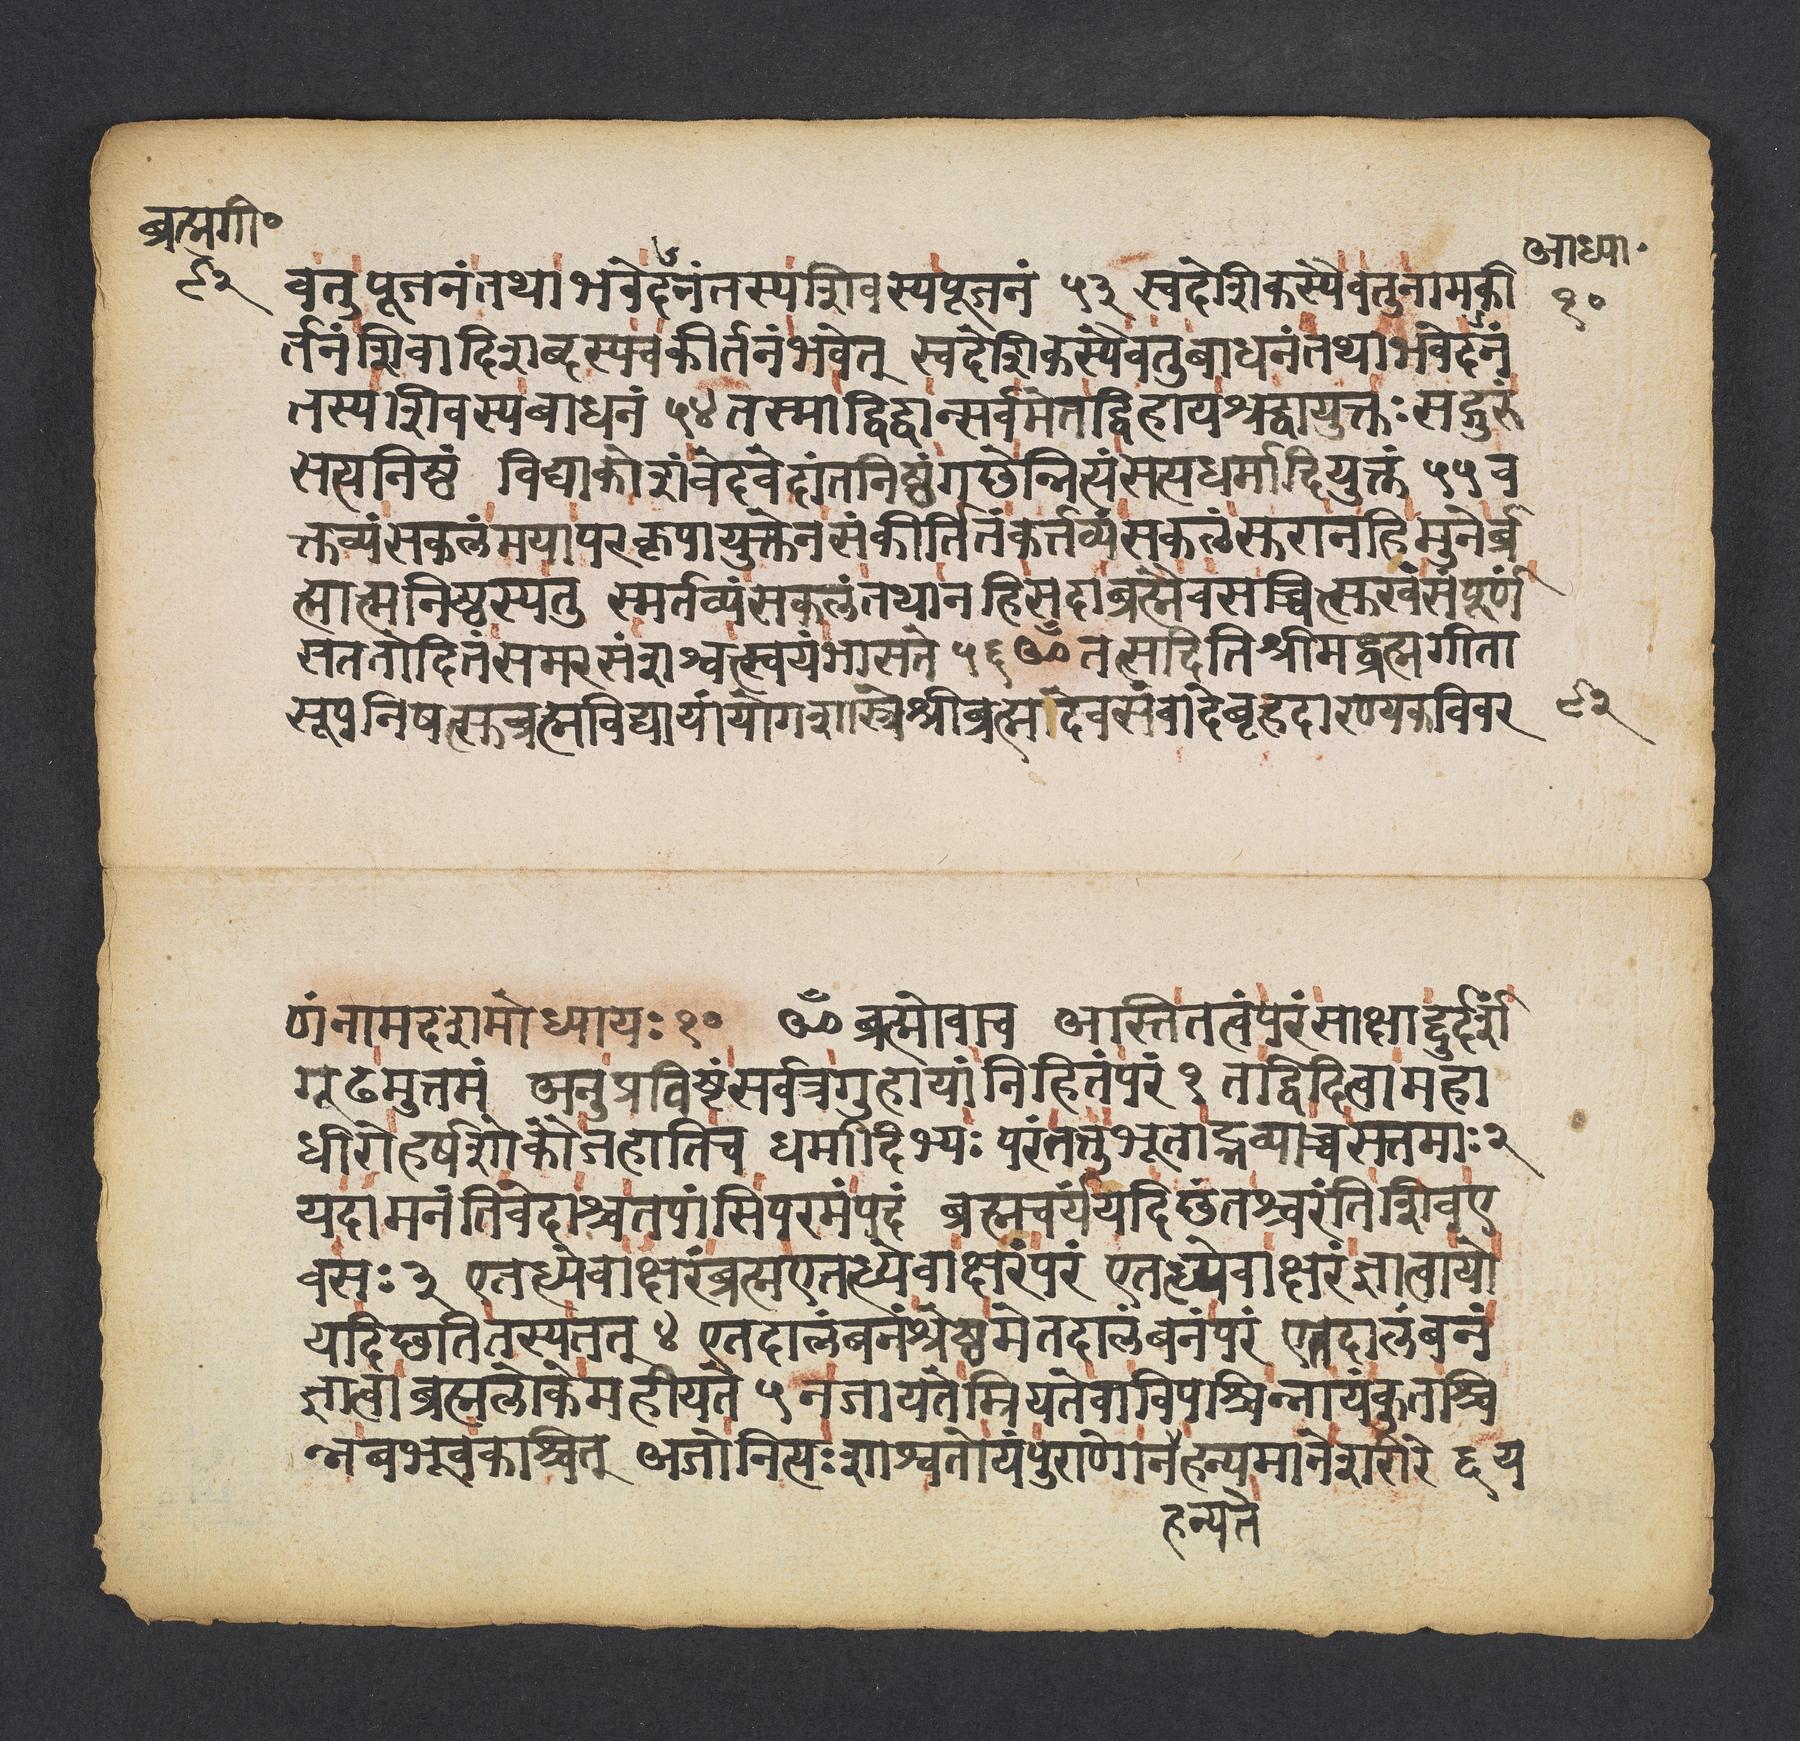 ब्रह्मगी॰
९२
आध्या॰
१०
वतुपूजनंतथाभवेदनंतस्यशिवस्यपूजनं ५३ स्वदेशिकस्यैवतुनामकी
र्तनंशिवादिशब्दस्यचकीर्तनंभवेत् स्वदेशिकस्यैवतुबाधनंतथाभवेदनं
तस्यशिवस्यबाधनं ५४ तस्माद्विद्वान्सर्वमेतद्विहायश्रद्धायुक्तःसद्गुरुं
सत्यनिष्ठं विद्याकोशंवेदवेदांतनिष्ठंगछेन्नित्यंसत्यधर्मादियुक्तं ५५ व
क्तव्यंसकलंमयापरकृपायुक्तेनसंकीर्तितंकर्त्तव्यंसकलंस्करानहिमुनेर्ब्र
ह्मात्मनिष्ठस्यतु स्मर्तव्यंसकलंतथानहिसदाब्रह्मैवसच्चित्सुखंसंपूर्णं
सततोदितंसमरसंशश्वत्स्वयंभासते ५६ ॐ तत्सदितिश्रीमद्ब्रह्मगीता
सूपनिषत्सुब्रह्मविद्यायांयोगशास्त्रेश्रीब्रह्मादेवसंवादेबृहदारण्यकविवर
९२
णंनामदशमोध्यायः १० ॐ ब्रह्मोवाच अस्तितत्वंपरंसाक्षाद्दुर्दर्शं
गूढमुत्तमं अनुप्रविष्टंसर्वत्रगुहायांनिहितंपरं १ तद्विदित्वामहा
धीरोहर्षशोकौजहातिच धर्मादिभ्यः परंतत्तुभूताद्भव्याच्चसत्तमाः २
यदामनंतिवेदाश्चतपांसिपरमंपदं ब्रह्मचर्यंयदिछंतश्चरंतिशिवए
वसः ३ एतध्येवाक्षरंब्रह्मएतध्येवाक्षरंपरं एतध्येवाक्षरंज्ञात्वायो
यदिछतितस्यतत् ४ एतदालंबनंश्रेष्ठमेतदालंबनंपरं एतदालंबनं
ज्ञात्वाब्रह्मलोकेमहीयते ५ नजायतेम्रियतेवाविपश्चिन्नायंकुतश्चि
न्नबभूवकश्चित् अजोनित्यःशाश्वतोयंपुराणोनहन्यमानेशरीरे ६ य
हन्यते